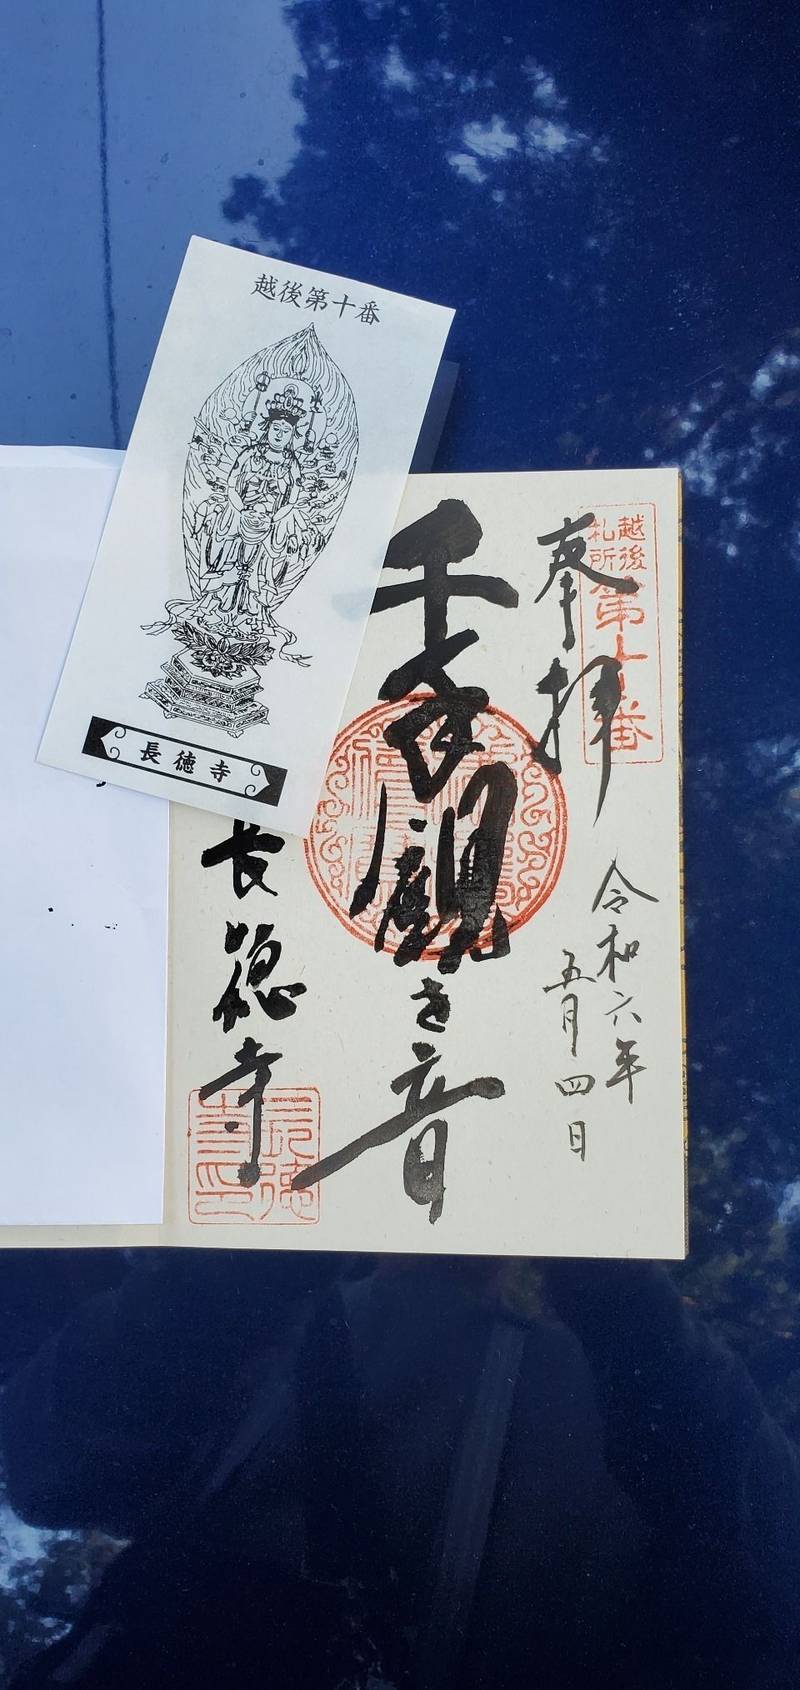 越後第十番
長徳寺
越後
札所
第十番
奉拝
令和六年
五月四日
千手觀世音
長徳寺
長徳
寺印